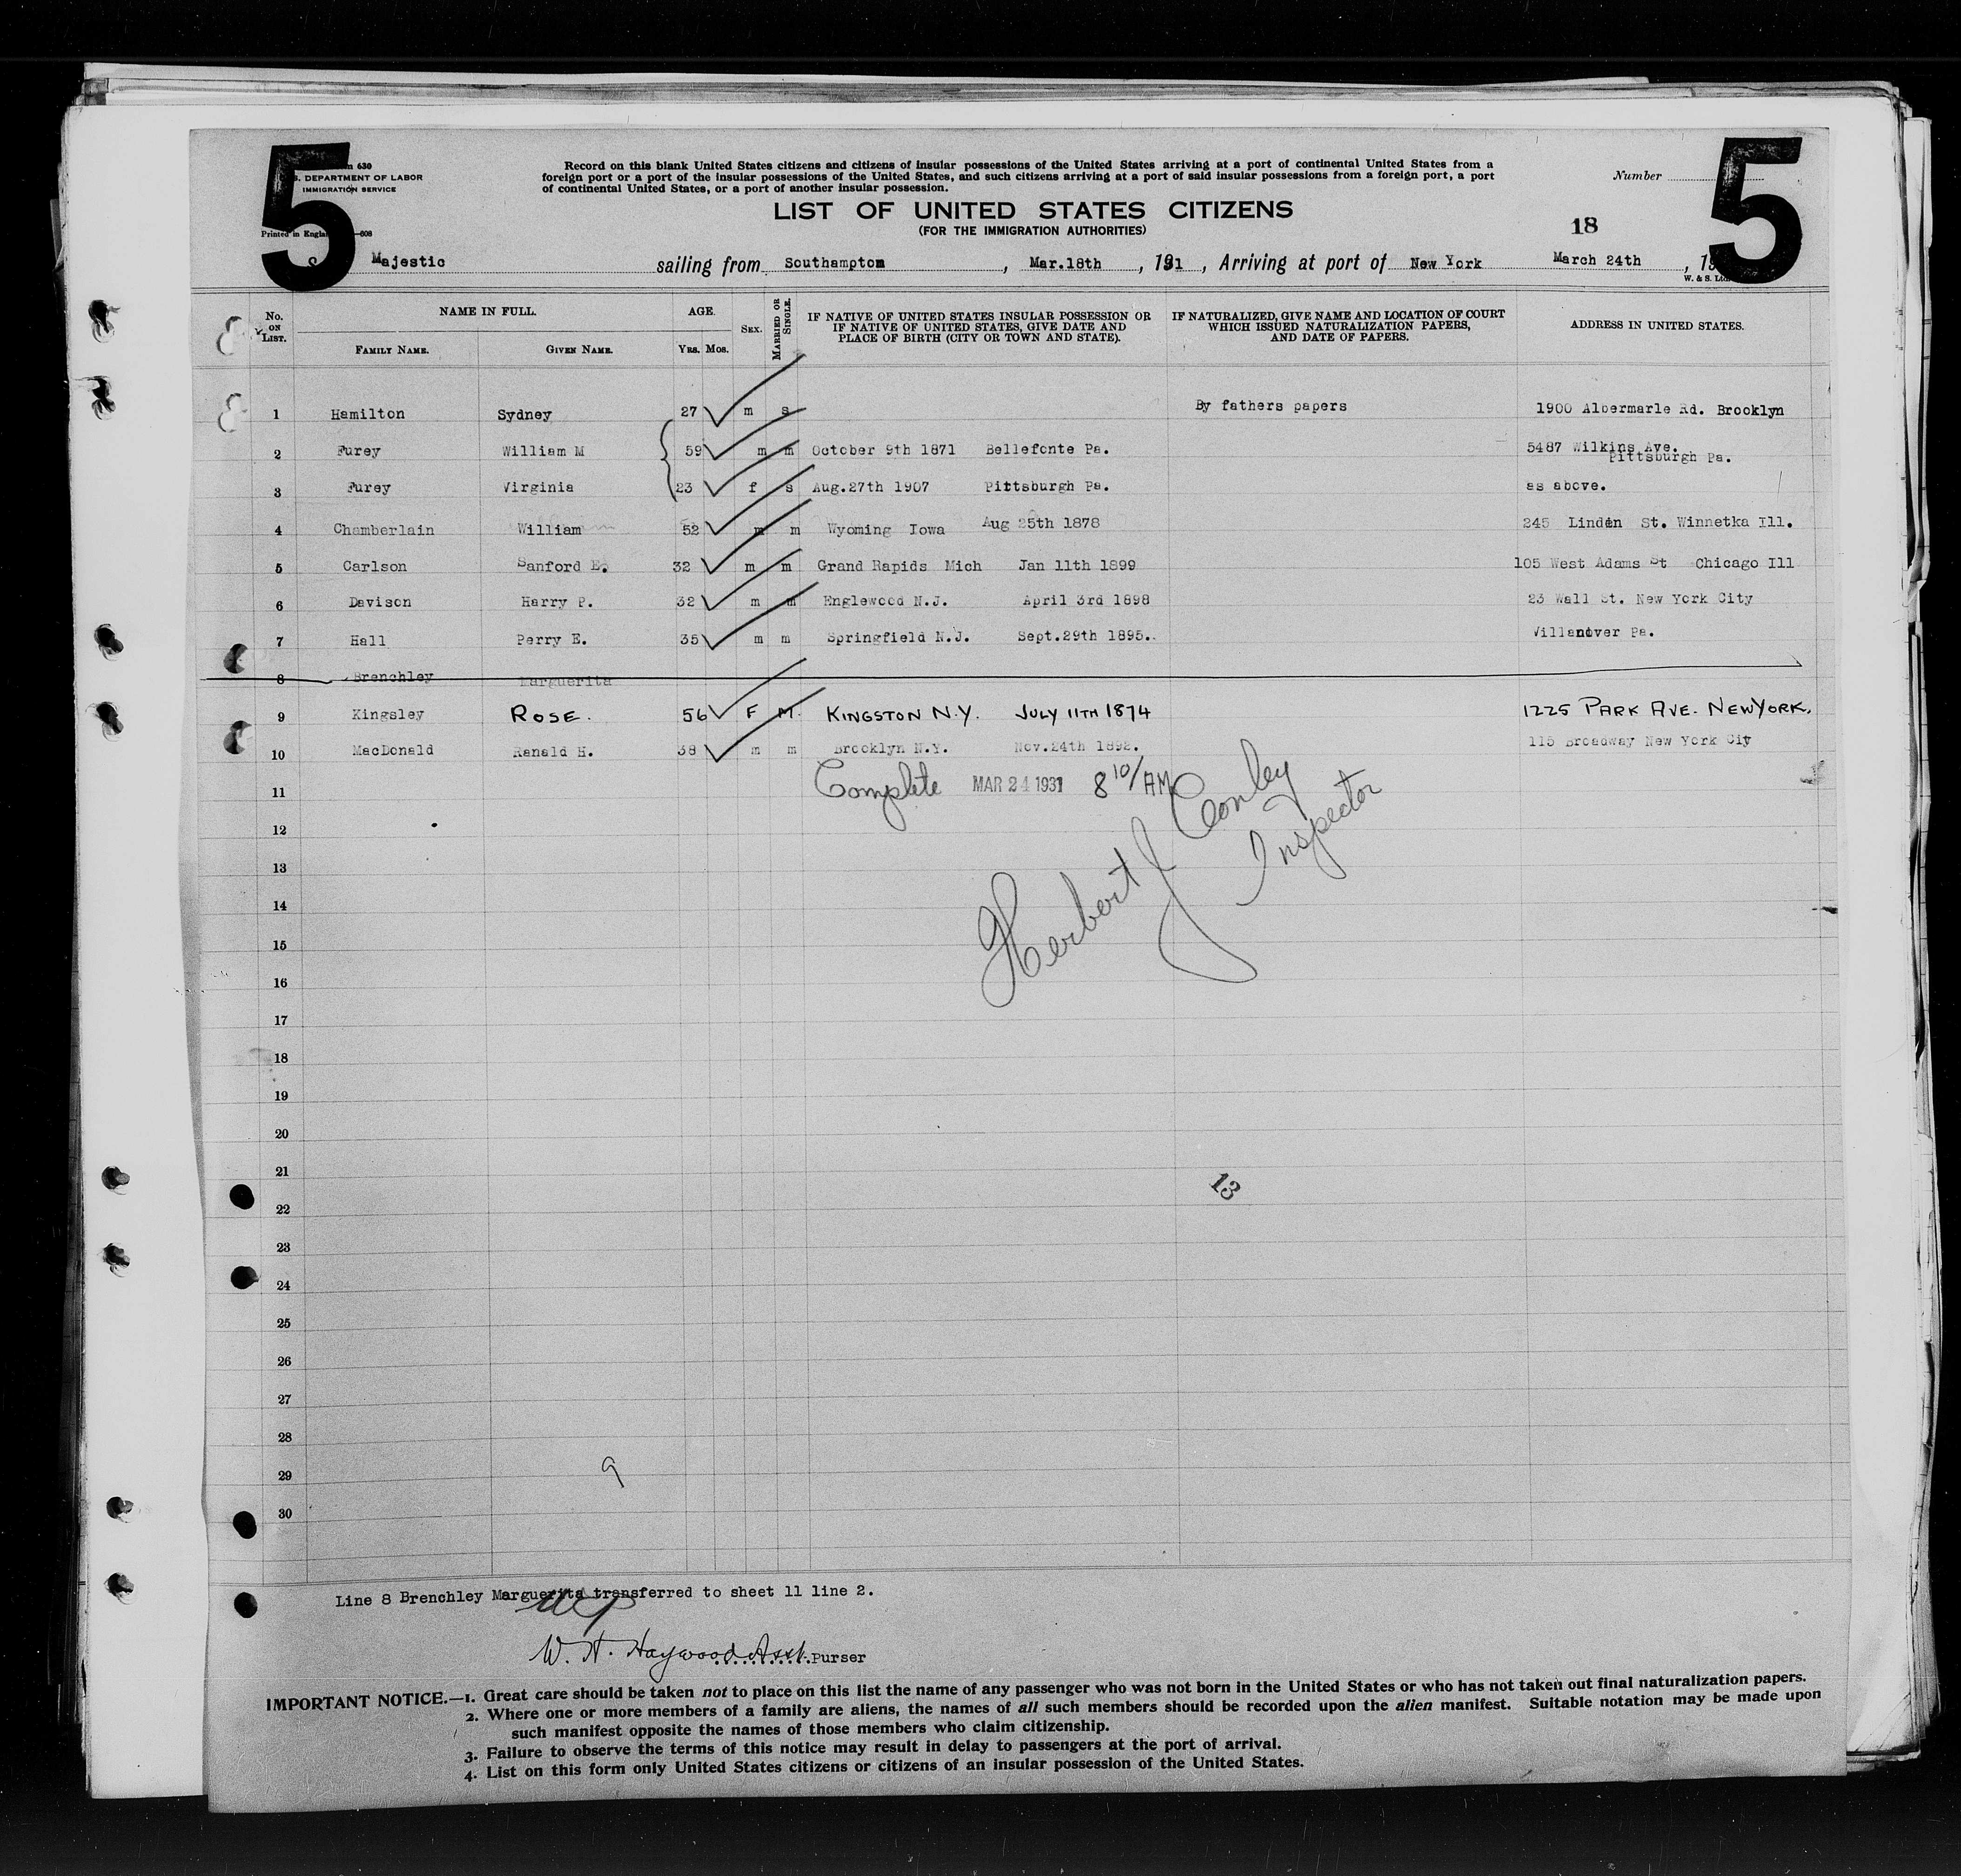 5
5
630
DEPARTMENT OF LABOR
IMMIGRATION SERVICE
Printed in —608
Record on this blank United States citizens and citizens of insular possessions of the United States arriving at a port of continental United States from a
foreign port or a port of the insular possessions of the United States, and such citizens arriving at a port of said insular possessions from a foreign port, a port
of continental United States, or a port of another insular possession.
Number
LIST OF UNITED STATES CITIZENS
(FOR THE IMMIGRATION AUTHORITIES)
18
Majestic sailing from Southampton, Mar.18th, 1931, Arriving at port of New York March 24th, 19
W. & S.
No. ON LIST. NAME IN FULL. FAMILY NAME. GIVEN NAME. AGE. YRS. MOS. SEX. MARRIED OR SINGLE. IF NATIVE OF UNITED STATES INSULAR POSSESSION OR IF NATIVE OF UNITED STATES, GIVE DATE AND PLACE OF BIRTH (CITY OR TOWN AND STATE). IF NATURALIZED, GIVE NAME AND LOCATION OF COURT WHICH ISSUED NATURALIZATION PAPERS, AND DATE OF PAPERS. ADDRESS IN UNITED STATES.
1 Hamilton Sydney 27 m s By fathers papers 1900 Albermarle Rd. Brooklyn
2 Furey William M 59 m m October 9th 1871 Bellefonte Pa. 5487 Wilkins Ave. Pittsburgh Pa.
3 Furey Virginia 23 f s Aug.27th 1907 Pittsburgh Pa. as above.
4 Chamberlain William 52 m m Wyoming Iowa Aug 25th 1878 245 Linden St. Winnetka Ill.
5 Carlson Sanford E. 32 m m Grand Rapids Mich Jan 11th 1899 105 West Adams St Chicago Ill
6 Davison Harry P. 32 m m Englewood N.J. April 3rd 1898 23 Wall St. New York City
7 Hall Perry E. 35 m m Springfield N.J. Sept.29th 1895. Villanover Pa.
8 Brenchley Marguerita
9 Kingsley ROSE. 56 F M. KINGSTON N.Y. JULY 11TH 1874 1225 PARK AVE. NEWYORK.
10 MacDonald Ranald H. 38 m m Brooklyn N.Y. Nov.24th 1892. 115 Broadway New York Cit y
11 Complete MAR 24 1931 8 10/AM
Herbert J Conley
Inspector
12
13
14
15
16
17
18
19
20
21
13
22
23
24
25
26
27
28
29 9
30
Line 8 Brenchley Marguerita transferred to sheet 11 line 2.
W. H. Haywood Asst. Purser
IMPORTANT NOTICE.—1. Great care should be taken not to place on this list the name of any passenger who was not born in the United States or who has not taken out final naturalization papers.
2. Where one or more members of a family are aliens, the names of all such members should be recorded upon the alien manifest. Suitable notation may be made upon
such manifest opposite the names of those members who claim citizenship.
3. Failure to observe the terms of this notice may result in delay to passengers at the port of arrival.
4. List on this form only United States citizens or citizens of an insular possession of the United States.